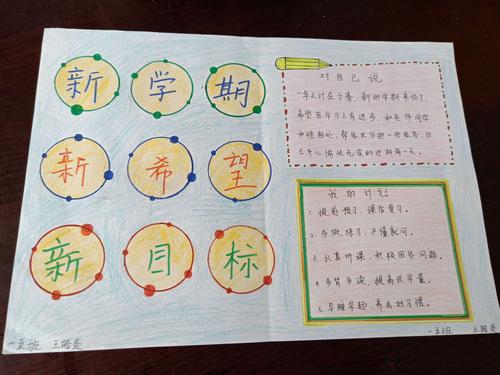 新学期
新希望
新目标
对自己说
一年之计在于春，新的学期来临了，
希望在学习上有进步，和老师同学
和睦相处，帮家长分担一些家务，自
己开心愉快充实的过好每一天。
我的计划
1. 提前预习，课后复习。
2. 多做练习，不懂就问。
3. 认真听课，积极回答问题。
4. 多背多读，提高识字量。
5. 早睡早起，养成好习惯。
一五班 王皓
一五班 王皓